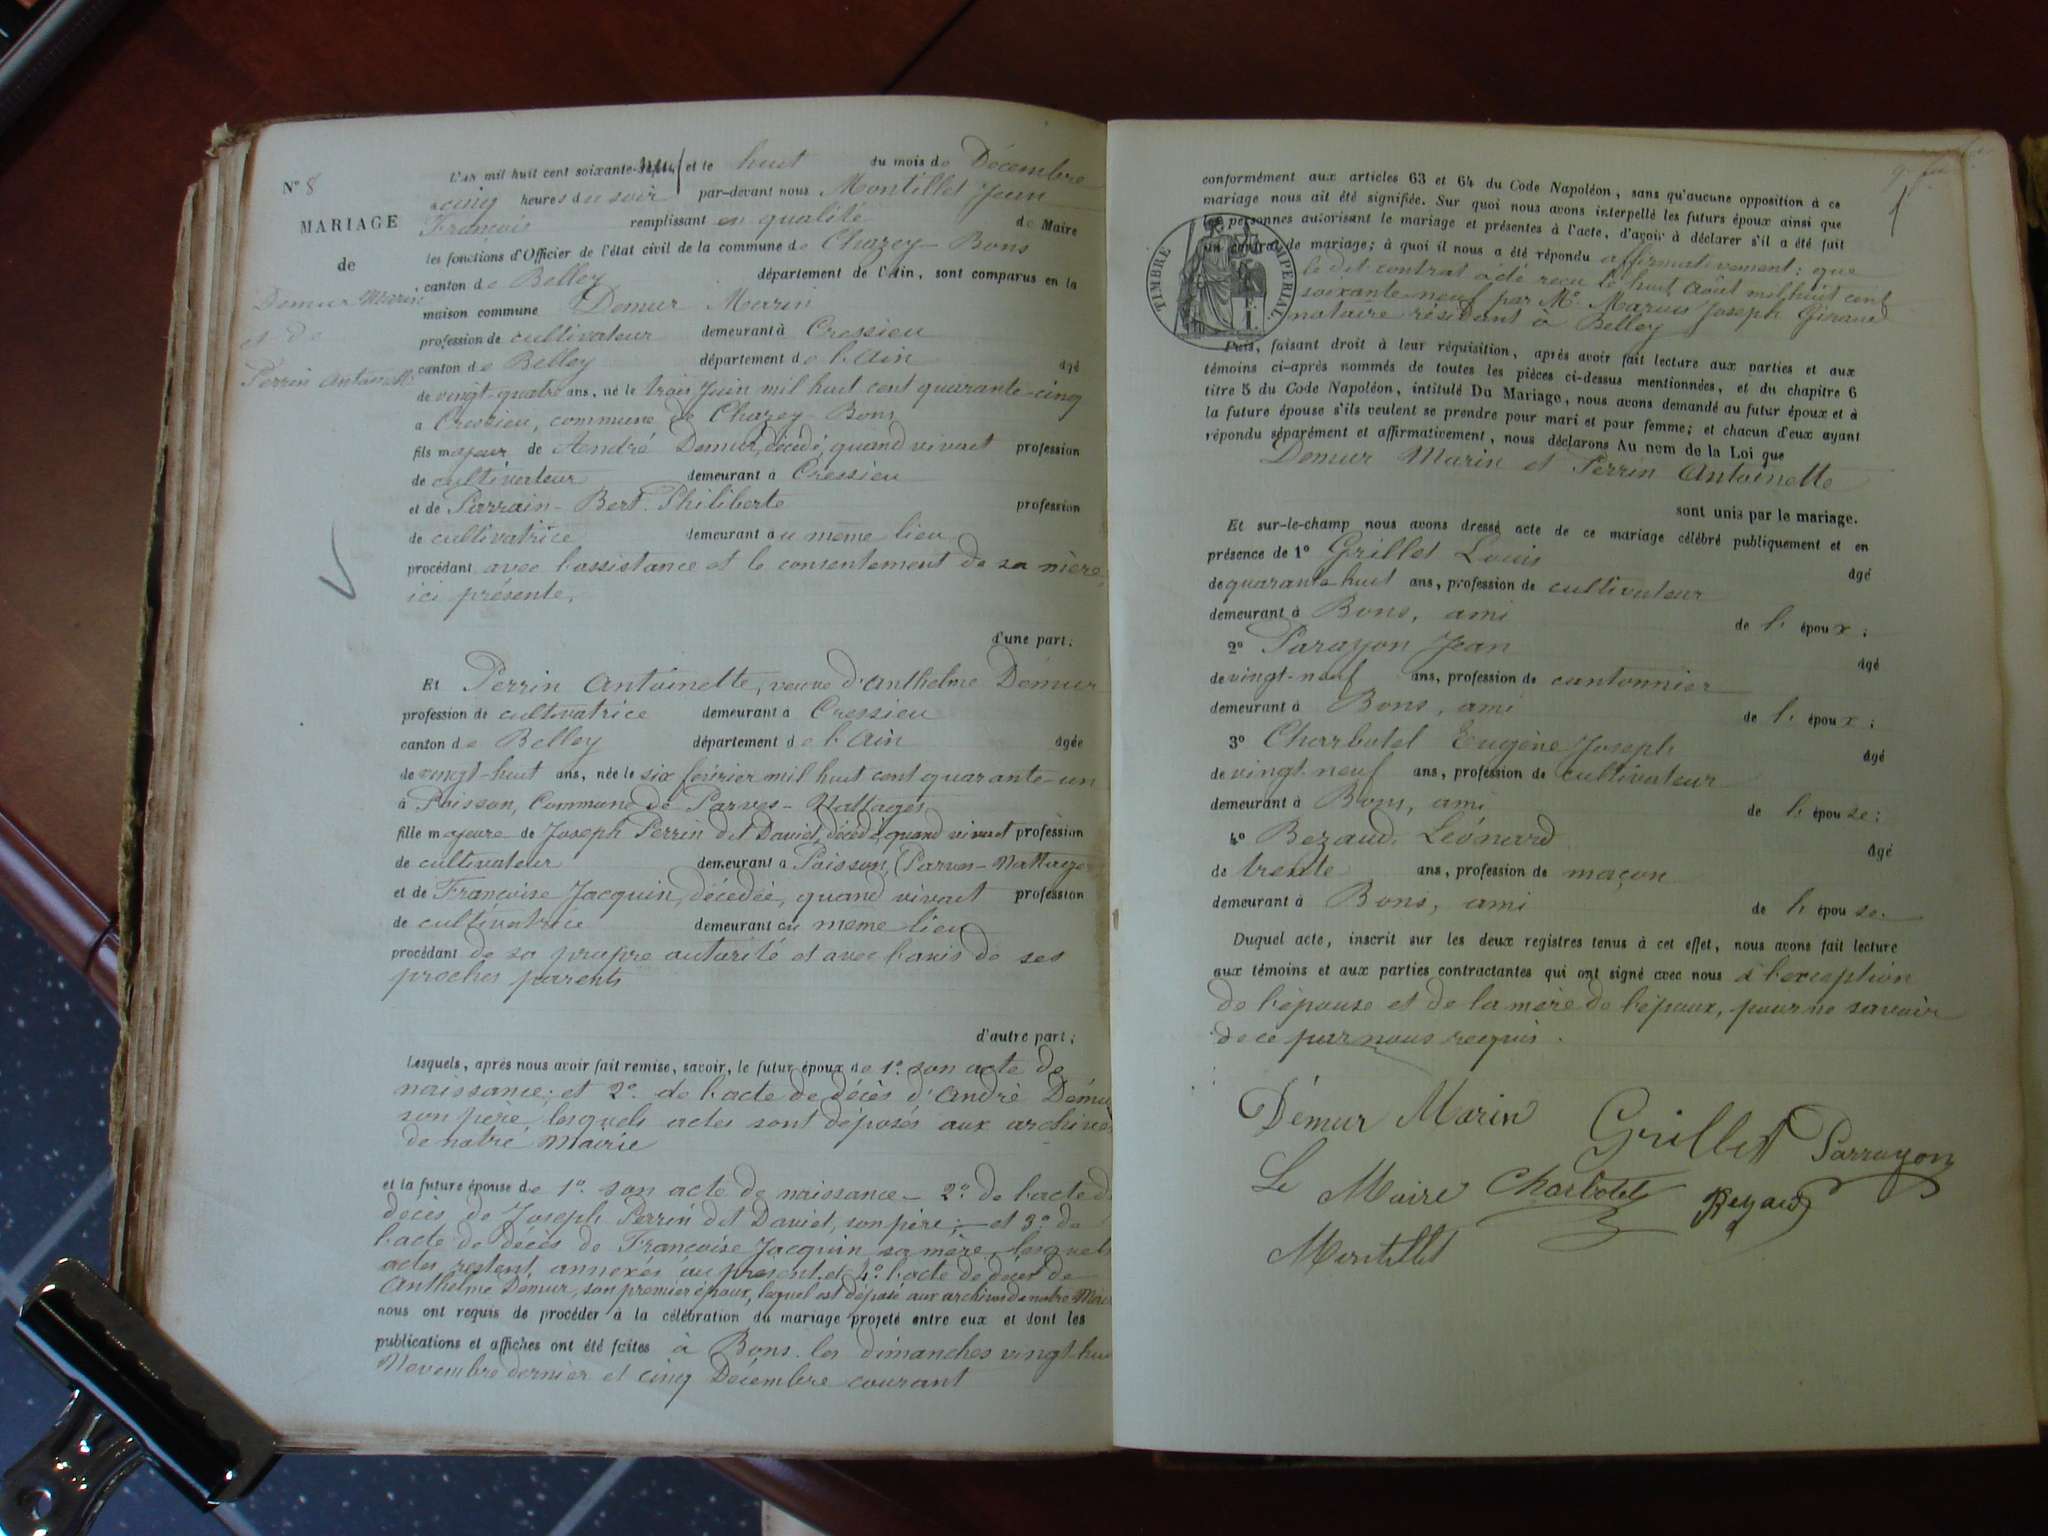 N° 8
MARIAGE
de
Demur Marin
et de
Perrin Antoinette
L'AN mil huit cent soixante- et le huit du mois de Décembre
à cinq heures du soir par-devant nous Montillet Jean
François remplissant en qualité de Maire
les fonctions d'Officier de l'état civil de la commune de Chazey-Bons
canton de Belley département de l'Ain, sont comparus en la
maison commune Demur Marin
profession de cultivateur demeurant à Cressieu
canton de Belley département de l'Ain âgé
de vingt-quatre ans, né le trois Juin mil huit cent quarante-cinq
à Cressieu, commune de Chazey-Bons
fils majeur de André Demur, décédé, quand vivait profession
de cultivateur demeurant à Cressieu
et de Perrain-Bert Philiberte profession
de cultivatrice demeurant au même lieu
procédant avec l'assistance et le consentement de sa mère
ici présente,
d'une part;
Et Perrin Antoinette, veuve d'Anthelme Démur
profession de cultivatrice demeurant à Cressieu
canton de Belley département de l'Ain âgée
de vingt-huit ans, née le six février mil huit cent quarante-un
à Poisson, Commune de Parves-Nattages
fille majeure de Joseph Perrin dit Daviet, décédé, quand vivait profession
de cultivateur demeurant à Poisson, (Parves-Nattages
et de Françoise Jacquin, décédée, quand vivait profession
de cultivatrice demeurant au même lieu
procédant de sa propre autorité et avec l'avis de ses
proches parents
d'autre part;
Lesquels, après nous avoir fait remise, savoir, le futur époux de 1°. son acte de
naissance; et 2°. de l'acte de décès d'André Démur
son père, lesquels actes sont déposés aux archives
de notre Mairie
et la future épouse de 1°. son acte de naissance - 2°. de l'acte de
décès de Joseph Perrin dit Daviet, son père; - et 3°. de
l'acte de décès de Françoise Jacquin sa mère, lesquels
actes restent annexés au présent. et 4°. l'acte de décès de
Anthelme Démur, son premier époux, lequel est déposé aux archives de notre Mairie
nous ont requis de procéder à la célébration du mariage projeté entre eux et dont les
publications et affiches ont été faites à Bons les dimanches vingt-huit
Novembre dernier et cinq Décembre courant
conformément aux articles 63 et 64 du Code Napoléon, sans qu'aucune opposition à ce
mariage nous ait été signifiée. Sur quoi nous avons interpellé les futurs époux ainsi que
les personnes autorisant le mariage et présentes à l'acte, d'avoir à déclarer s'il a été fait
un contrat de mariage; à quoi il nous a été répondu affirmativement: que
le dit contrat a été reçu le huit Août mil huit cent
soixante-neuf par Me. Marius Joseph Giraud
notaire résidant à Belley
TIMBRE IMPERIAL
Puis, faisant droit à leur réquisition, après avoir fait lecture aux parties et aux
témoins ci-après nommés de toutes les pièces ci-dessus mentionnées, et du chapitre 6
titre 5 du Code Napoléon, intitulé Du Mariage, nous avons demandé au futur époux et à
la future épouse s'ils veulent se prendre pour mari et pour femme; et chacun d'eux ayant
répondu séparément et affirmativement, nous déclarons Au nom de la Loi que
Demur Marin et Perrin Antoinette
sont unis par le mariage.
Et sur-le-champ nous avons dressé acte de ce mariage célébré publiquement et en
présence de 1° Grillet Louis âgé
de quarante huit ans, profession de cultivateur
demeurant à Bons, ami de l'époux;
2° Parayon Jean âgé
de vingt-neuf ans, profession de cantonnier
demeurant à Bons, ami de l'époux;
3° Charbotel Eugène Joseph âgé
de vingt-neuf ans, profession de cultivateur
demeurant à Bons, ami de l'épouse;
4° Bezaud Léonard âgé
de trente ans, profession de maçon
demeurant à Bons, ami de l'épouse.
Duquel acte, inscrit sur les deux registres tenus à cet effet, nous avons fait lecture
aux témoins et aux parties contractantes qui ont signé avec nous à l'exception
de l'épouse et de la mère de l'époux, pour ne savoir
de ce par nous requis.
Démur Marin Grillet Parrayon
Le Maire Charbotel Beyaud
Montillet